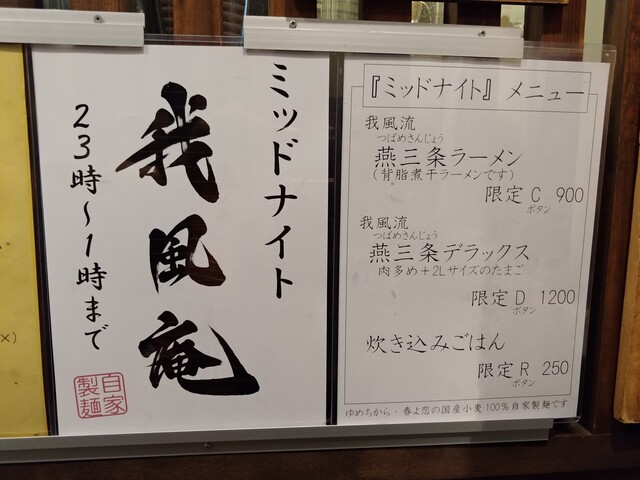 ミッドナイト
我風庵
23時〜1時まで
自家
製麺
『ミッドナイト』 メニュー
我風流
つばめさんじょう
燕三条ラーメン
(背脂煮干ラーメンです)
限定C 900
ボタン
我風流
つばめさんじょう
燕三条デラックス
肉多め+2Lサイズのたまご
限定D 1200
ボタン
炊き込みごはん
限定R 250
ボタン
ゆめちから・春よ恋の国産小麦100%自家製麺です
×)